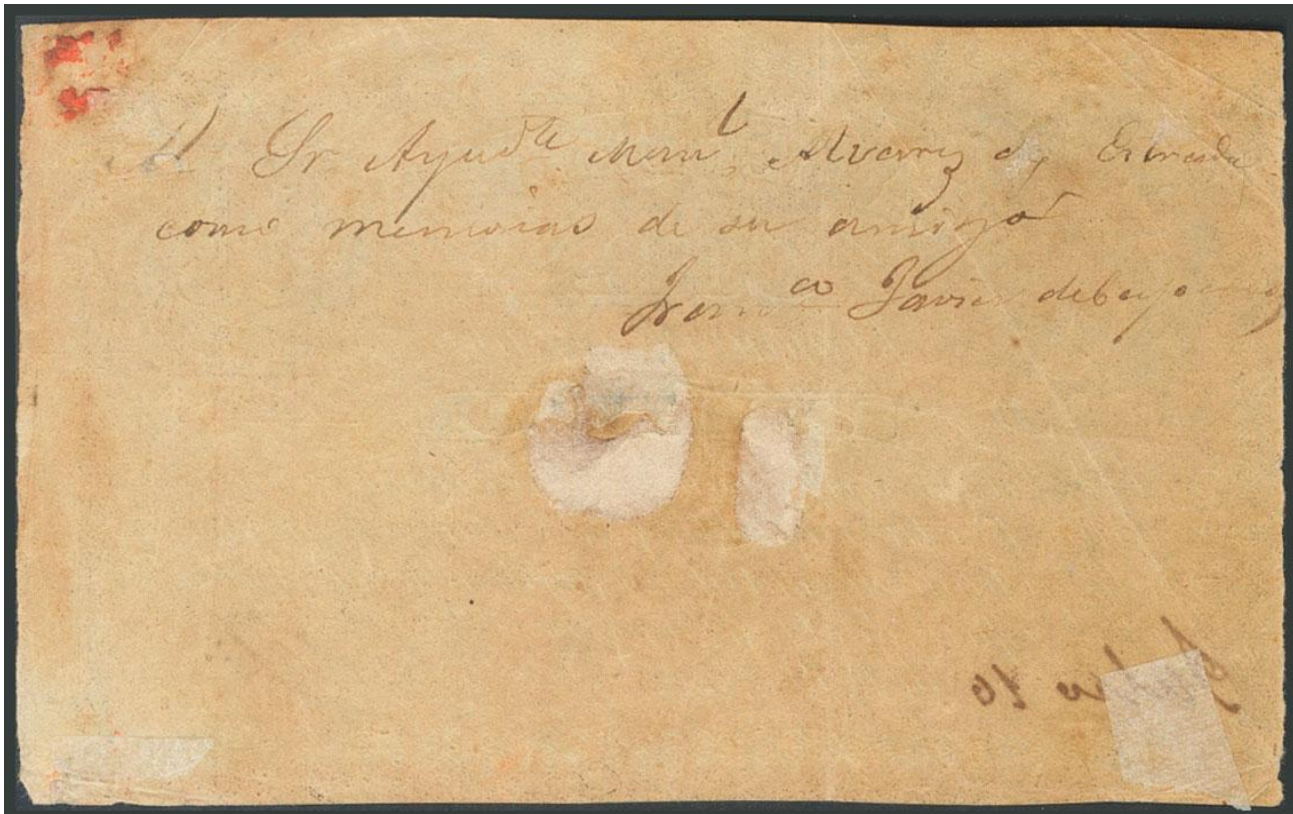 Al Sr Ayud.te Man.l Alvarez y Estrada
como memorias de su amigo
Fran.co Javier de